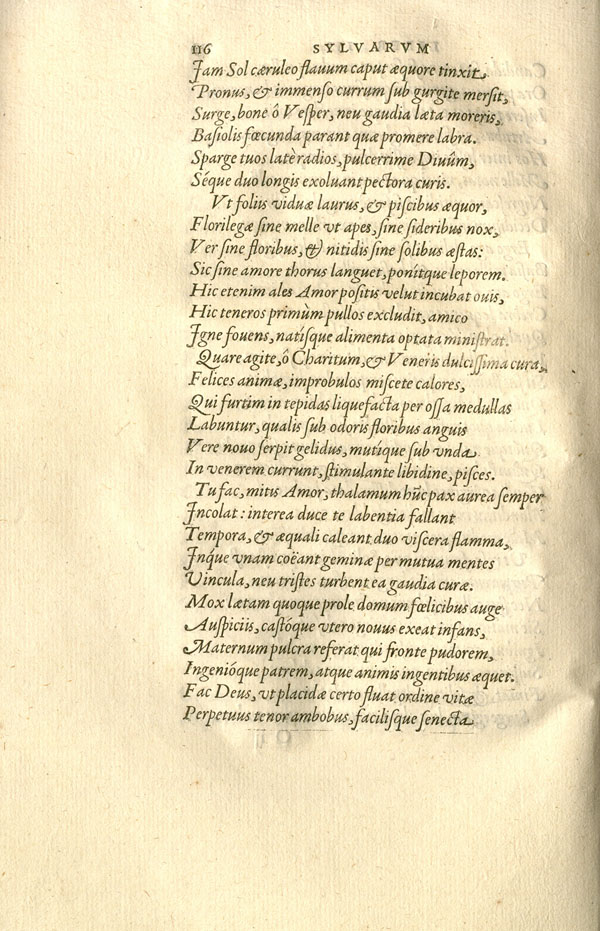 116 SYLVARVM
Jam Sol cæruleo flauum caput æquore tinxit,
Pronus, & immenso currum sub gurgite mersit,
Surge, bone ô Vesper, neu gaudia læta moreris,
Basiolis fœcunda parant quæ promere labra.
Sparge tuos latè radios, pulcerrime Diuûm,
Séque duo longis exoluant pectora curis.
Vt foliis viduæ laurus, & piscibus æquor,
Florilegæ sine melle vt apes, sine sideribus nox,
Ver sine floribus, & nitidis sine solibus æstas:
Sic sine amore thorus languet, ponítque leporem.
Hic etenim ales Amor positis velut incubat ouis,
Hic teneros primùm pullos excludit, amico
Igne fouens, natísque alimenta optata ministrat.
Quare agite, ô Charitum, & Veneris dulcissima cura,
Felices animæ, improbulos miscete calores,
Qui furtim in tepidas liquefacta per ossa medullas
Labuntur, qualis sub odoris floribus anguis
Vere nouo serpit gelidus, mutíque sub vnda
In venerem currunt, stimulante libidine, pisces.
Tu fac, mitis Amor, thalamum hūc pax aurea semper
Incolat: interea duce te labentia fallant
Tempora, & æquali caleant duo viscera flamma,
Inq́ue vnam coëant geminæ per mutua mentes
Vincula, neu tristes turbent ea gaudia curæ.
Mox lætam quoque prole domum fœlicibus auge
Auspiciis, castóque vtero nouus exeat infans,
Maternum pulcra referat qui fronte pudorem,
Ingenióque patrem, atque animis ingentibus æquet.
Fac Deus, vt placidæ certo fluat ordine vitæ
Perpetuus tenor ambobus, facilísque senecta